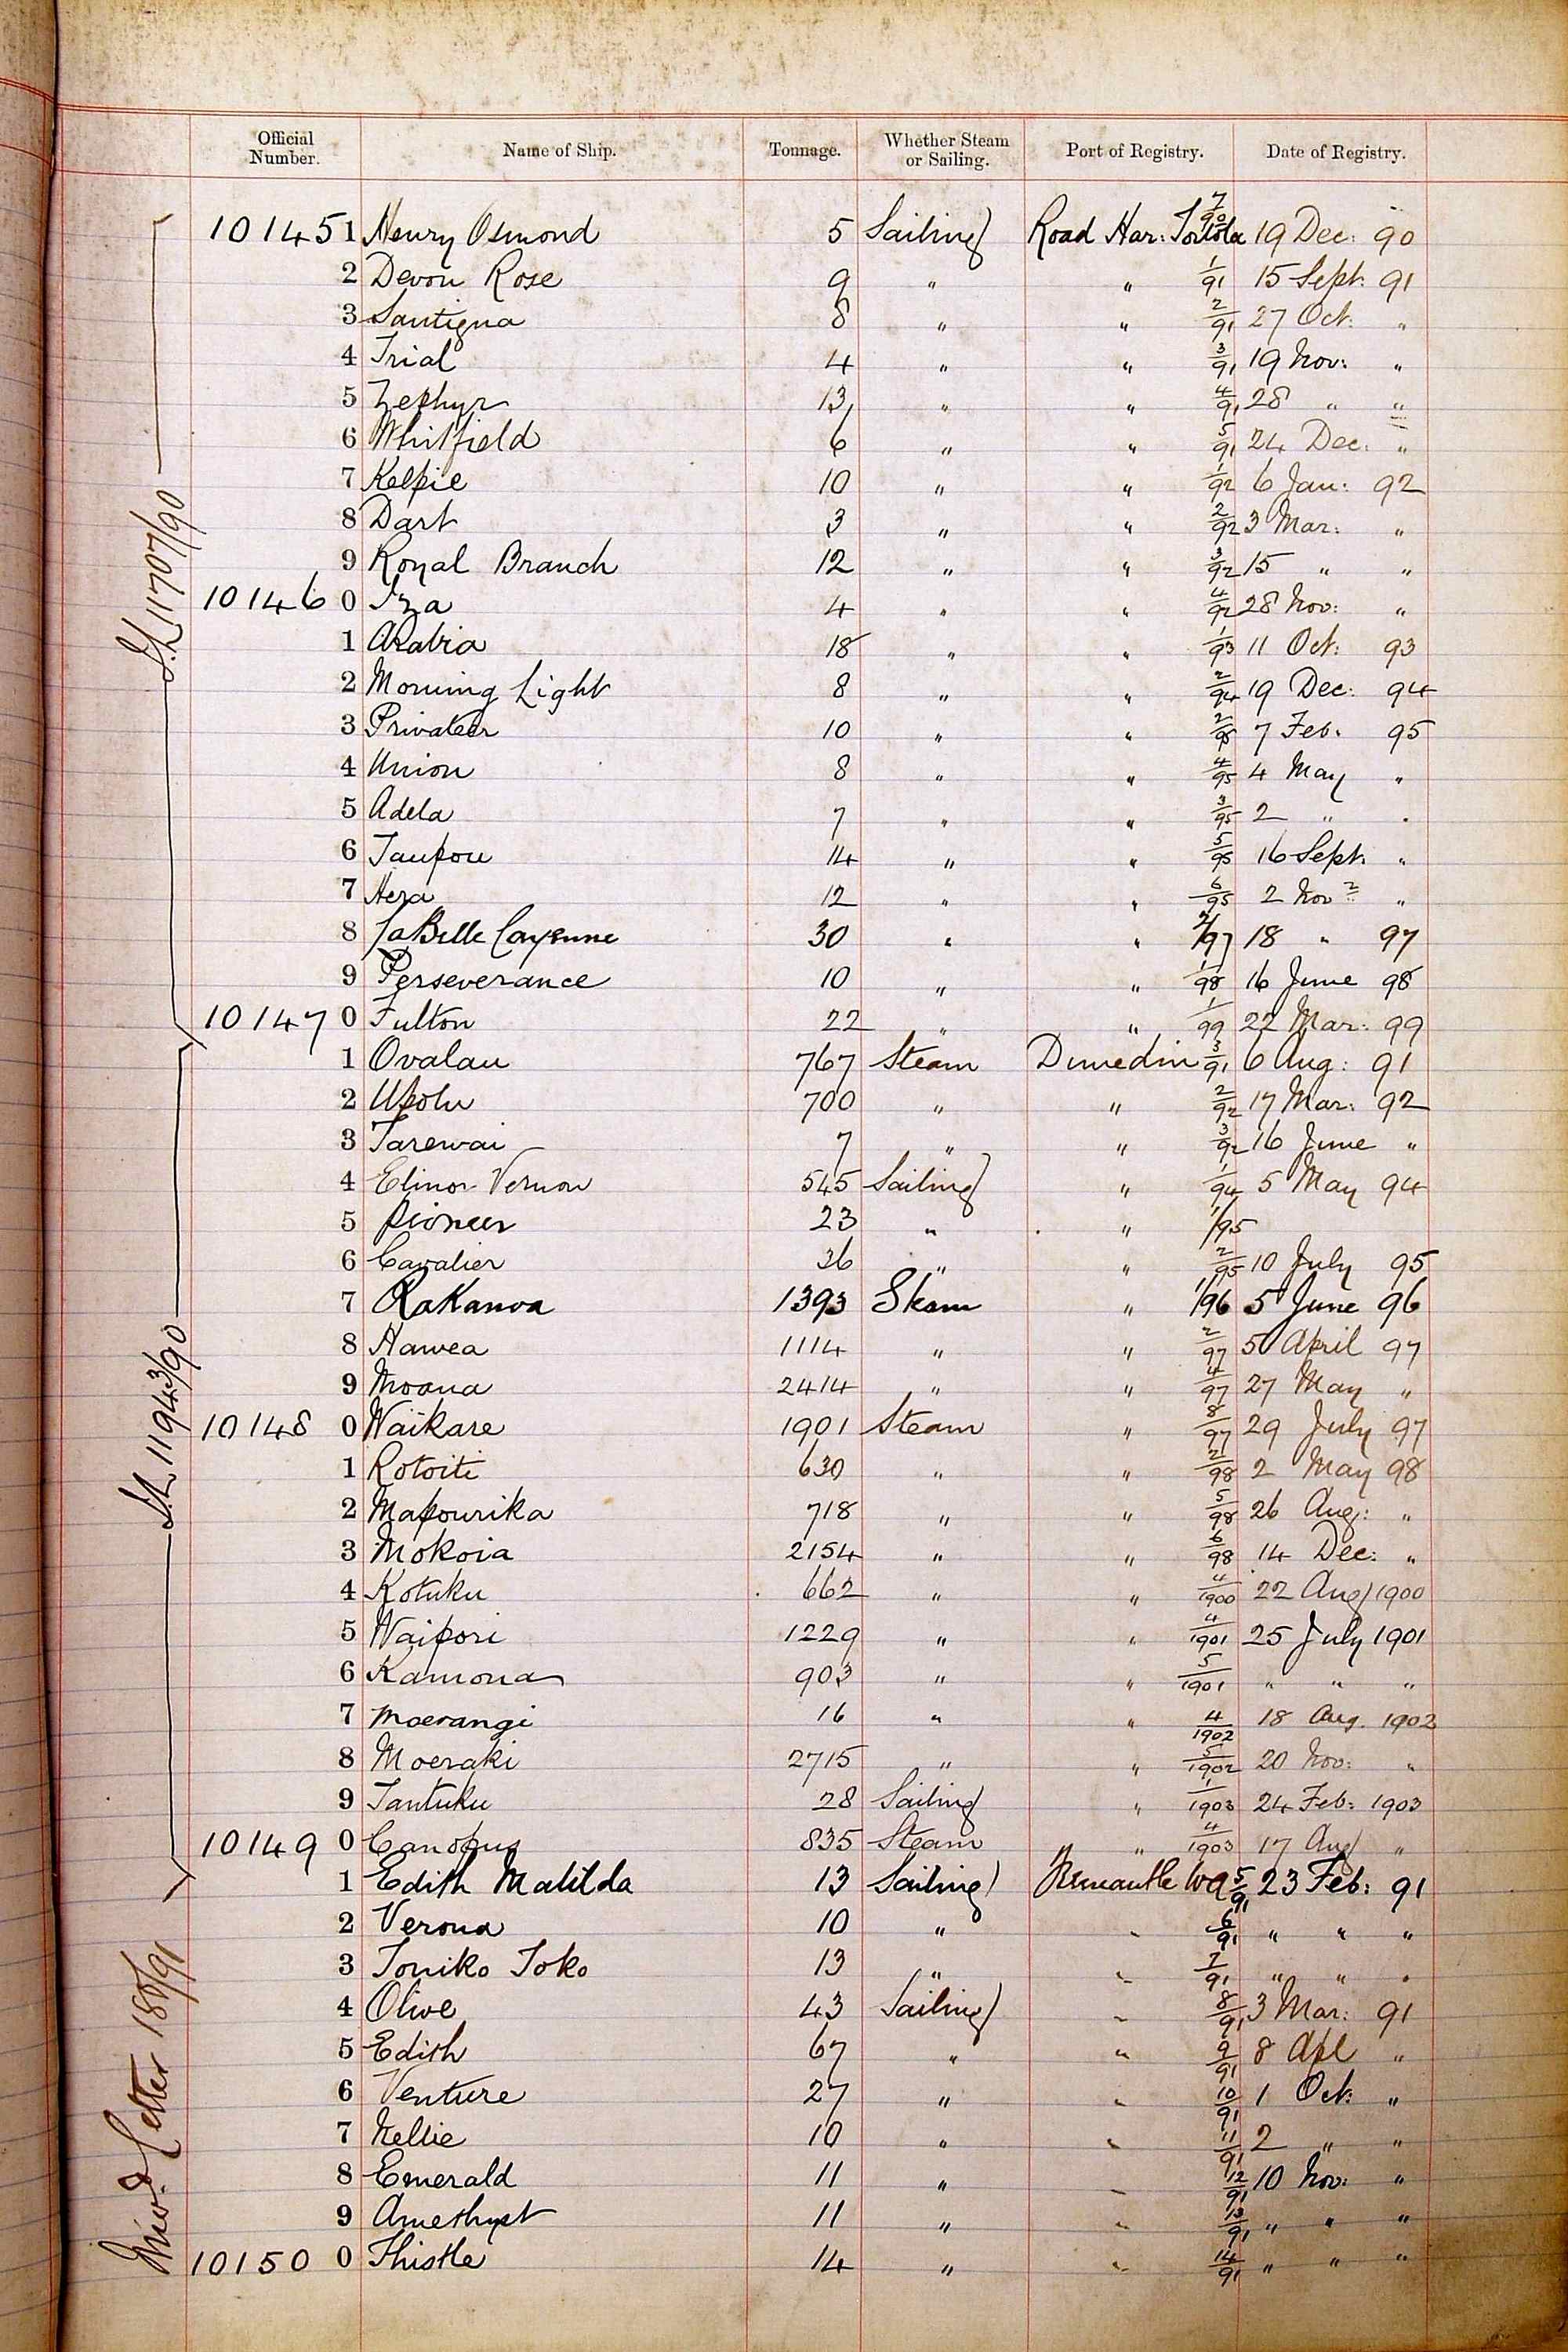 Official Number. Name of Ship. Tonnage. Whether Steam or Sailing. Port of Registry. Date of Registry.
101451 Henry Osmond 5 Sailing Road Har: Tortola 7/90 19 Dec: 90
2 Devon Rose 9 " " 1/91 15 Sept: 91
3 Santigna 8 " " 2/91 27 Oct: "
4 Trial 4 " " 3/91 19 Nov: "
5 Zephyr 13 " " 4/91 28 " "
6 Whitfield 6 " " 5/91 24 Dec: "
7 Kelpie 10 " " 1/92 6 Jan: 92
8 Dart 3 " " 2/92 3 Mar: "
9 Royal Branch 12 " " 3/92 15 " "
101460 Iza 4 " " 4/92 28 Nov: "
1 Arabia 18 " " 1/93 11 Oct: 93
2 Morning Light 8 " " 2/94 19 Dec: 94
3 Privateer 10 " " 2/95 7 Feb: 95
4 Union 8 " " 4/95 4 May "
5 Adela 7 " " 3/95 2 " "
6 Taupou 14 " " 5/95 16 Sept: "
7 Hera 12 " " 6/95 2 Nov "
8 La Belle Cayenne 30 " " 2/97 18 " 97
9 Perseverance 10 " " 1/98 16 June 98
101470 Fulton 22 " " 1/99 22 Mar: 99
1 Ovalau 767 Steam Dunedin 3/91 6 Aug: 91
2 Upolu 700 " " 2/92 17 Mar: 92
3 Tarewai 7 " " 3/92 16 June "
4 Elinor Vernon 545 Sailing " 1/94 5 May 94
5 Pioneer 23 " " 1/95
6 Cavalier 36 " " 2/95 10 July 95
7 Rakanoa 1393 Steam " 1/96 5 June 96
8 Hawea 1114 " " 2/97 5 April 97
9 Moana 2414 " " 4/97 27 May "
101480 Waikare 1901 Steam " 8/97 29 July 97
1 Rotoiti 630 " " 2/98 2 May 98
2 Mapourika 718 " " 5/98 26 Aug: "
3 Mokoia 2154 " " 6/98 14 Dec: "
4 Kotuku 662 " " 4/1900 22 Aug 1900
5 Waipori 1229 " " 4/1901 25 July 1901
6 Kamona 903 " " 5/1901 " " "
7 Moerangi 16 " " 4/1902 18 Aug. 1902
8 Moeraki 2715 " " 5/1902 20 Nov: "
9 Tautuku 28 Sailing " 1/1903 24 Feb: 1903
101490 Canopus 835 Steam " 4/1903 17 Aug "
1 Edith Matilda 13 Sailing Fremantle WA 5/91 23 Feb: 91
2 Verona 10 " " 6/91 " " "
3 Toniko Toko 13 " " 7/91 " " "
4 Olive 43 Sailing " 8/91 3 Mar: 91
5 Edith 67 " " 9/91 8 Apl "
6 Venture 27 " " 10/91 1 Oct: "
7 Nellie 10 " " 11/91 2 " "
8 Emerald 11 " " 12/91 10 Nov: "
9 Amethyst 11 " " 13/91 " " "
101500 Thistle 14 " " 14/91 " " "
S.L 11707/90
S.L 11943/90
Letter